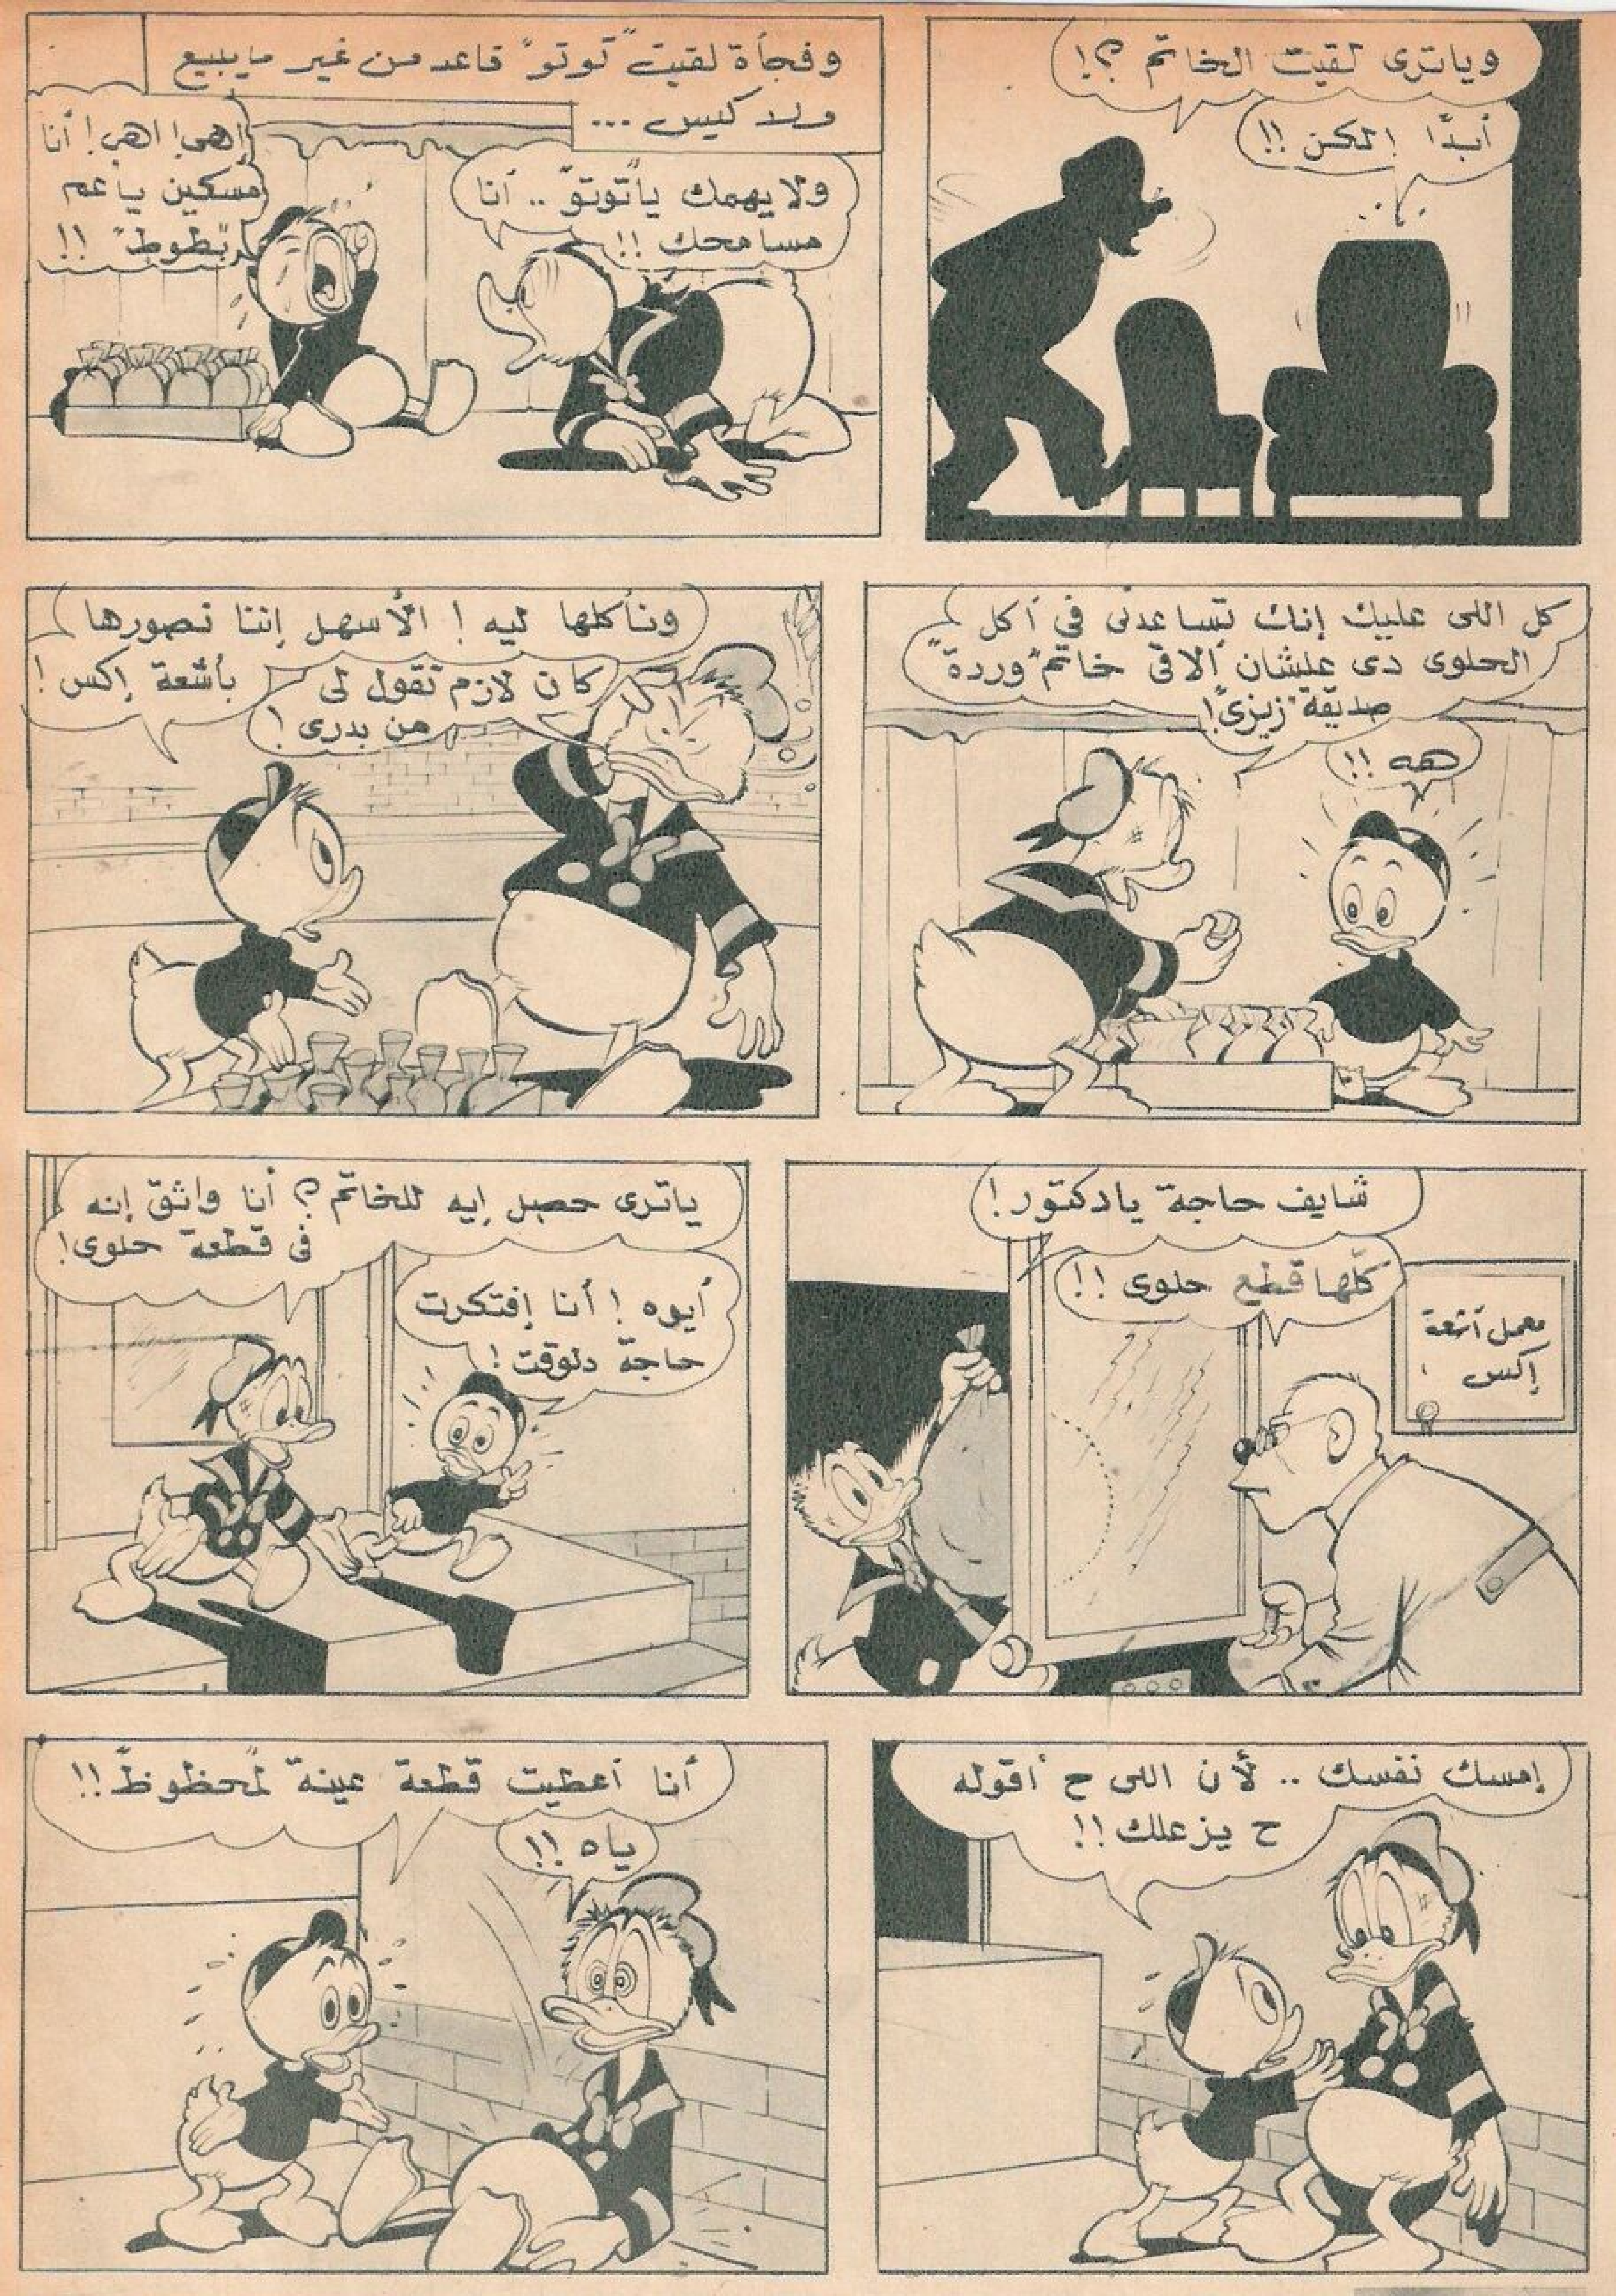 وياترى لقيت الخاتم ؟!
أبدًا ! لكن !!
وفجأة لقيت "توتو" قاعد من غير مايبيع
ولا كيس ...
ولا يهمك يا"توتو" .. أنا
مسامحك !!
إهئ ! اهئ ! أنا
مسكين ياعم
"بطوط" !!
كل اللى عليك إنك تساعدنى فى أكل
الحلوى دى علشان ألاقى خاتم "وردة"
صديقة "زيزى" !
هه !!
ونأكلها ليه ! الأسهل إننا نصورها
بأشعة إكس !
كان لازم تقول لى
من بدرى !
شايف حاجة يادكتور !
كلّها قطع حلوى !!
معمل أشعة
إكس
ياترى حصل إيه للخاتم ؟ أنا واثق إنه
فى قطعة حلوى !
أيوه ! أنا إفتكرت
حاجة دلوقت !
إمسك نفسك .. لأن اللى ح أقوله
ح يزعلك !!
أنا أعطيت قطعة عينة "لمحظوظ" !!
ياه !!